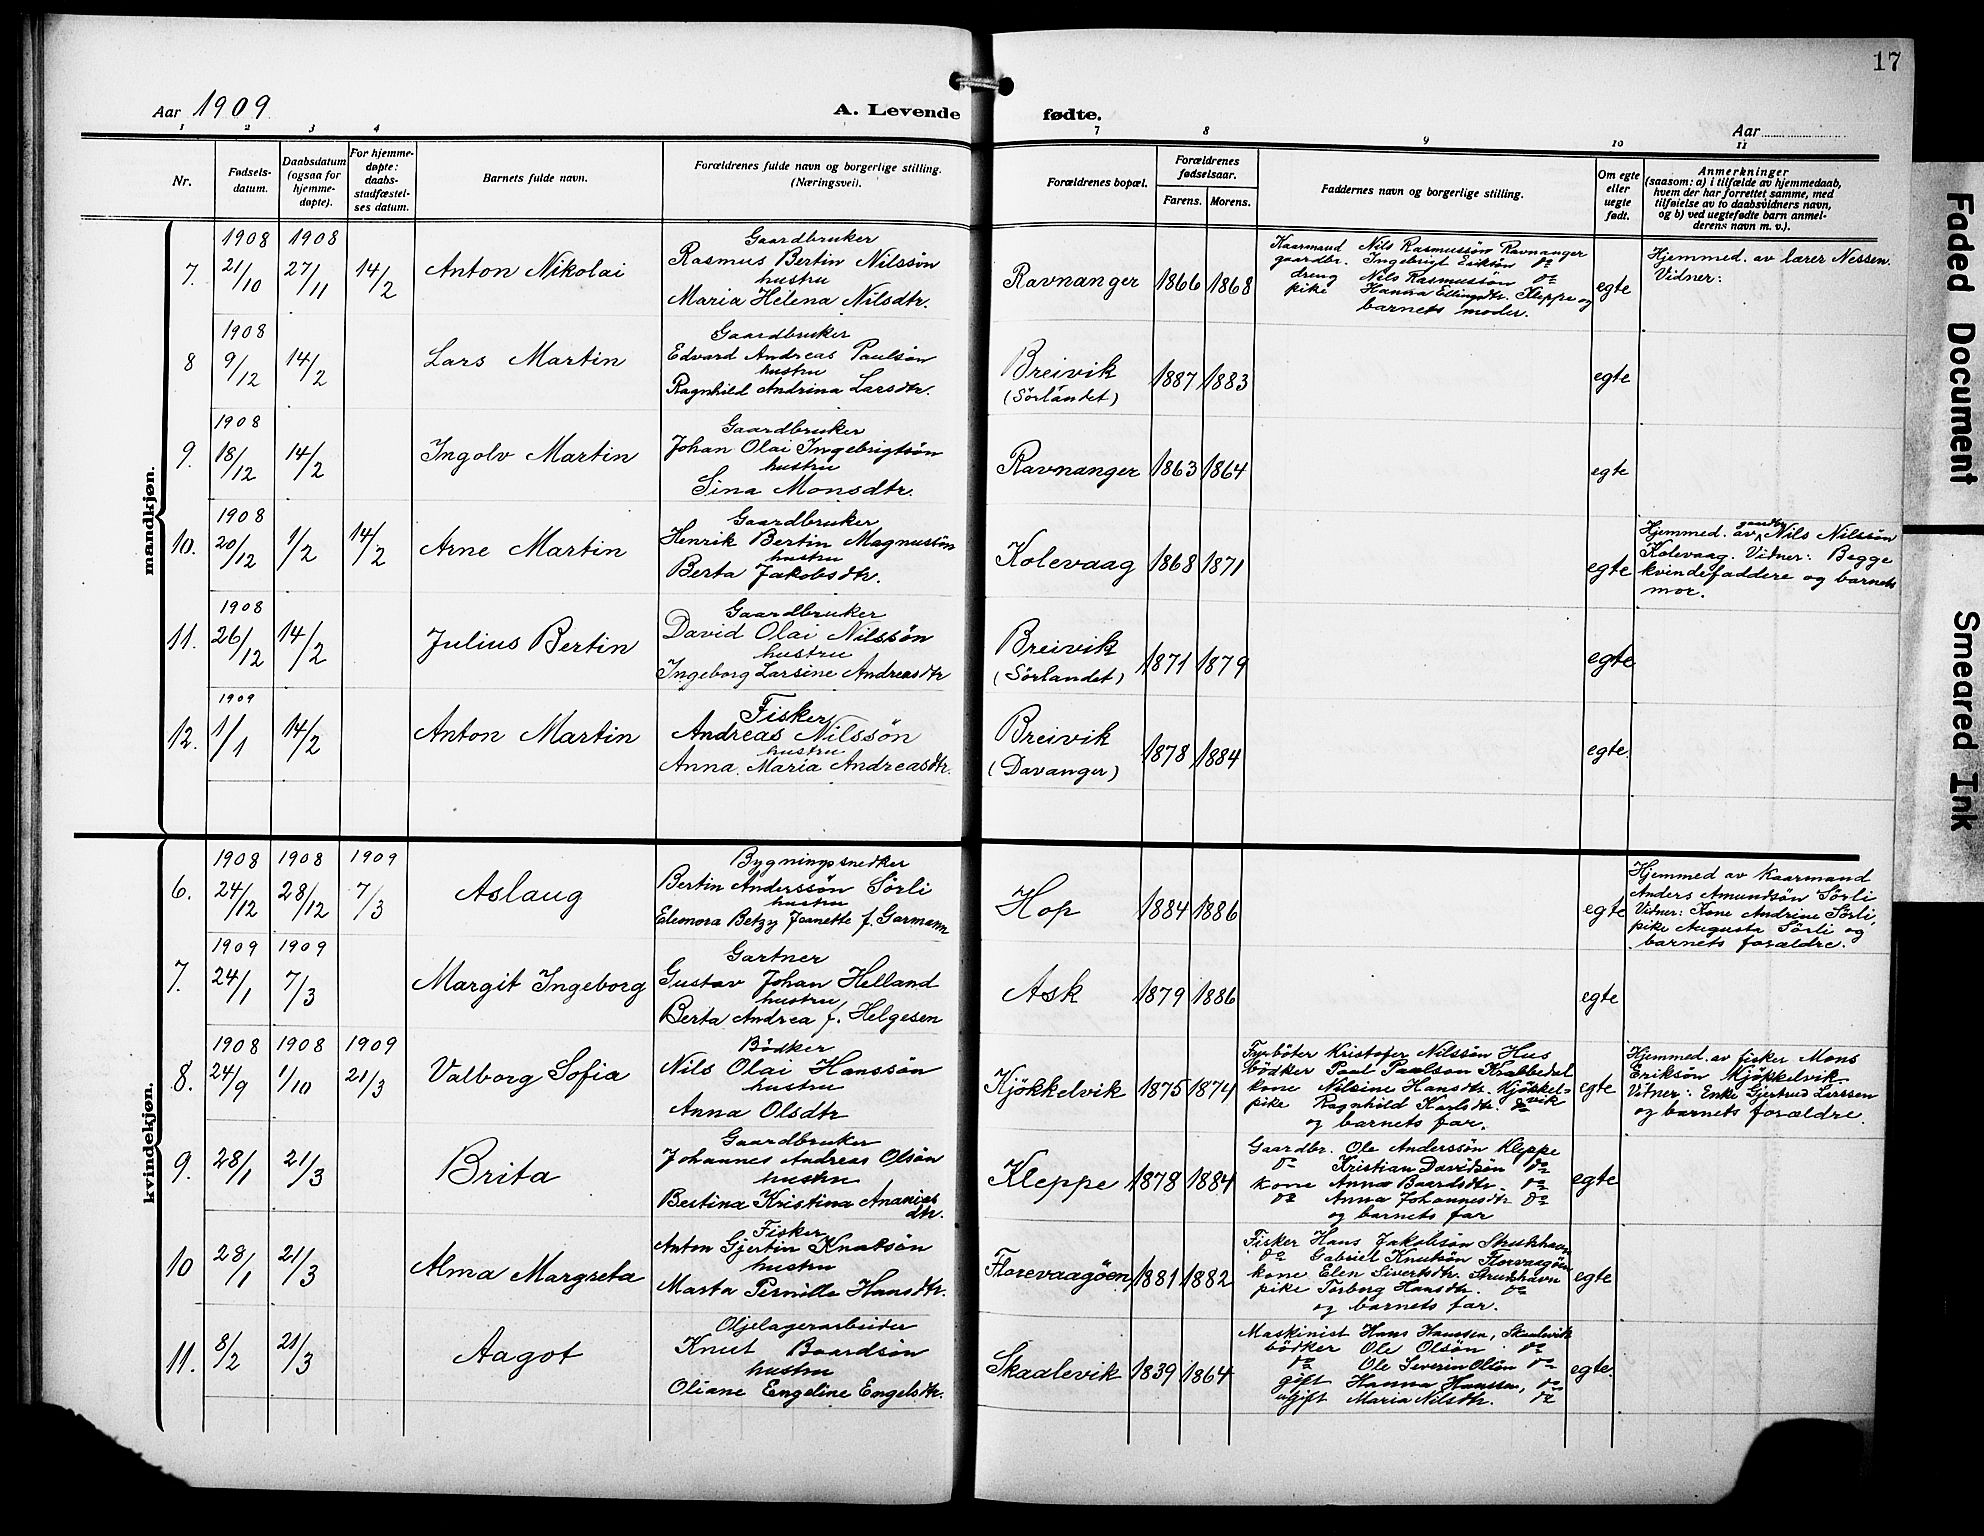 17
Aar 1909
A. Levende fødte.
Aar
1 2 3 4 7 8 9 10 11
Nr.
Fødsels-
datum.
Daabsdatum
(ogsaa for
hjemme-
døpte).
For hjemme-
døpte:
daabs-
stadfæstel-
ses datum.
Barnets fulde navn.
Forældrenes fulde navn og borgerlige stilling.
(Næringsvei).
Forældrenes bopæl.
Forældrenes
fødselsaar.
Farens. Morens.
Faddernes navn og borgerlige stilling.
Om egte
eller
uegte
født.
Anmerkninger
(saasom: a) i tilfælde av hjemmedaab,
hvem der har forrettet samme, med
tilføielse av to daabsvidners navn,
og b) ved uegtefødte barn anmel-
derens navn m. v.).
mandkjøn.
7.
1908
21/10
1908
27/11
14/2
Anton Nikolai
Gaardbruker
Rasmus Bertin Nilssøn
hustru
Maria Helena Nilsdtr.
Ravnanger
1866
1868
Kaarmand Nils Rasmussøn Ravnanger
gaardbr. Ingebrigt Eriksøn do
dreng Nils Rasmussøn do
pike Hanna Ellingsdtr. Kleppe og
barnets moder.
egte
Hjemmed. av lærer Nessen.
Vidner:
8
1908
9/12
14/2
Lars Martin
Gaardbruker
Edvard Andreas Paulsøn
hustru
Ragnhild Andrina Larsdtr.
Breivik
(Sørlandet)
1887
1883
egte
9.
1908
18/12
14/2
Ingolv Martin
Gaardbruker
Johan Olai Ingebrigtsøn
hustru
Sina Monsdtr.
Ravnanger
1863
1864
egte
10.
1908
20/12
1/2
14/2
Arne Martin
Gaardbruker
Henrik Bertin Magnussøn
hustru
Berta Jakobsdtr.
Kolevaag
1868
1871
egte
Hjemmed. av gaardbr. Nils Nilssøn
Kolevaag. Vidner: Begge
kvindefaddere og barnets
mor.
11.
1908
26/12
14/2
Julius Bertin
Gaardbruker
David Olai Nilssøn
hustru
Ingeborg Larsine Andreasdtr
Breivik
(Sørlandet)
1871
1879
egte
12.
1909
1/1
14/2
Anton Martin
Fisker
Andreas Nilssøn
hustru
Anna Maria Andreasdtr.
Breivik
(Davanger)
1878
1884
egte.
kvindekjøn.
6.
1908
24/12
1908
28/12
1909
7/3
Aslaug
Bygningssnedker
Bertin Anderssøn Sørli
hustru
Eleonora Betzy Jeanette f. Garmann
Hop
1884
1886
egte
Hjemmed av Kaarmand
Anders Amundsøn Sørli
Vidner: Kone Andrine Sørli,
pike Augusta Sørli og
barnets forældre.
7.
1909
24/1
1909
7/3
Margit Ingeborg
Gartner
Gustav Johan Helland
hustru
Berta Andrea f. Helgesen
Ask
1879
1886
egte
8.
1908
24/9
1908
1/10
1909
21/3
Valborg Sofia
Bødker
Nils Olai Hanssøn
hustru
Anna Olsdtr
Kjøkkelvik
1875
1874
Fyrbøter Kristofer Nilssøn Hus
bødker Paul Paulson Krabbedal
kone Nilsine Hansdtr. Kjøkkel-
vik
pike Ragnhild Karlsdtr. do
og barnets far.
egte
Hjemmed. av fisker Mons
Eriksøn Kjøkkelvik
Vidner: Enke Gjertrud Larssen
og barnets forældre.
9.
28/1
21/3
Brita
Gaardbruker
Johannes Andreas Olsøn
hustru
Bertina Kristina Ananias
dtr.
Kleppe
1878
1884
Gaardbr. Ole Anderssøn Kleppe
do Kristian Davidsøn do
kone Anna Baardsdtr. do
do Anna Johannesdtr do
og barnets far
egte
10
28/1
21/3
Alma Margreta
Fisker
Anton Gjertin Knutsøn
hustru
Marta Pernille Hansdtr.
Florevaagøen
1881
1882
Fisker Hans Jakobsøn Strushavn
do Gabriel Knutsøn Florevaagøen
kone Elen Sivertsdtr. Strushavn
pike Torborg Hansdtr. do
og barnets far.
egte
11.
8/2
21/3
Aagot
Oljelagerarbeider
Knut Baardsøn
hustru
Oliane Engeline Engelsdtr.
Skaalevik
1839
1864
Maskinist Hans Hanssen, Skaalevik
bødker Ole Olsøn do
do Ole Severin Olsøn do
gift Hanna Hanssen, do
ugift Maria Nilsdtr. do
egte.
Faded Document
Smeared Ink